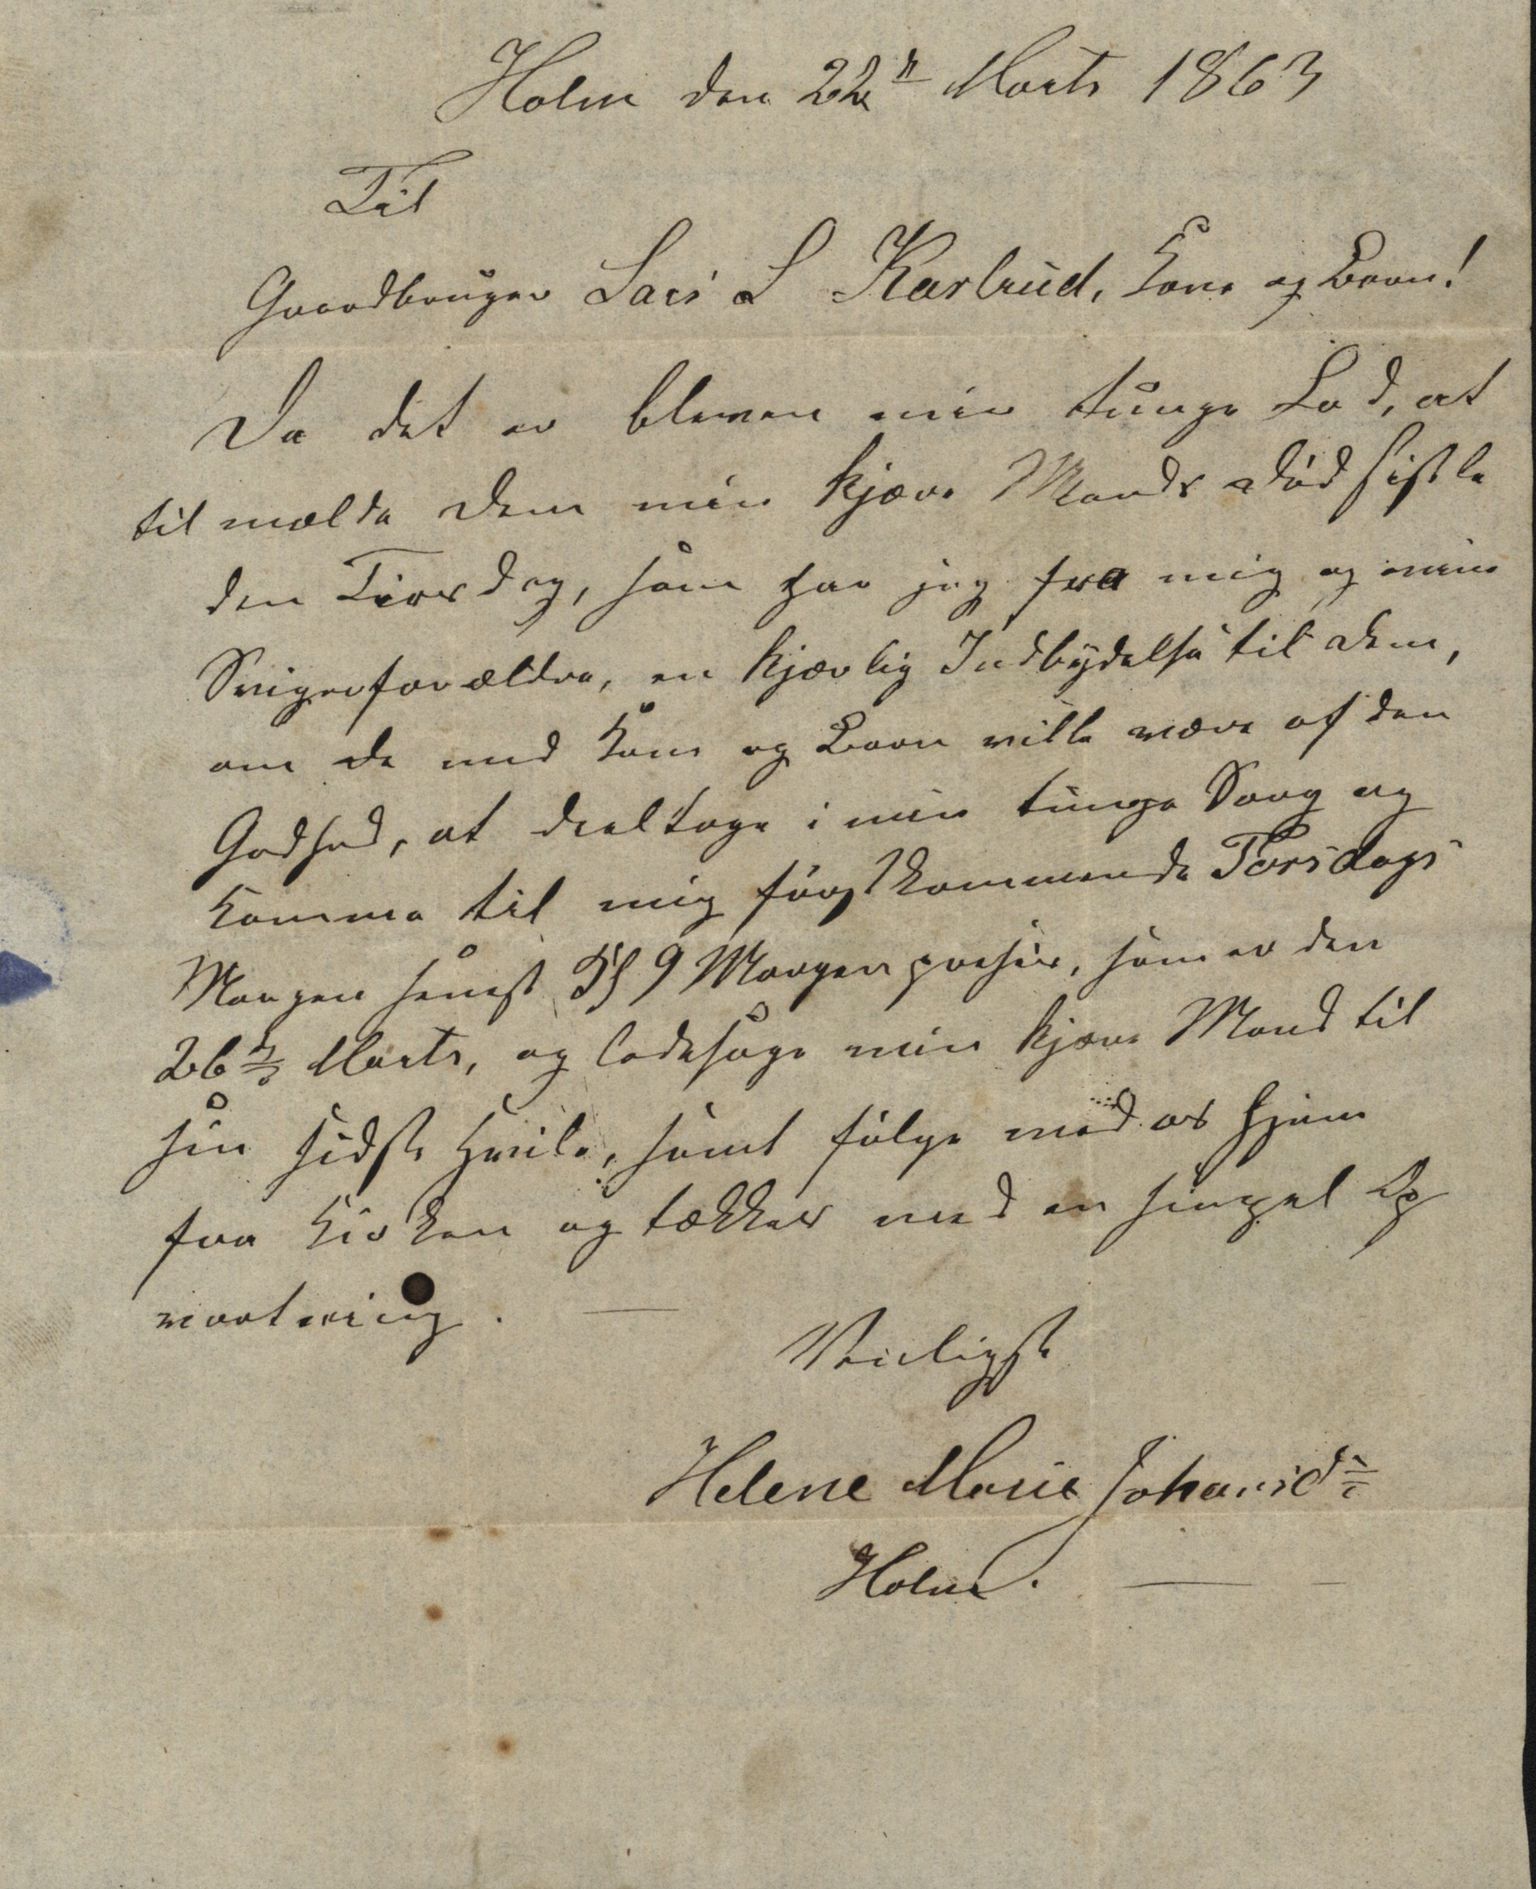 Holm den 22n Marts 1863
Til
Gaardbruger Lars L Karlsrud, Kone og Børn!
Da det er bleven min tunge Lod, at
til mælde Dem min kjære Mands Død sistle
den Tirsdag, som har jeg fra mig og mine
Svigerforældre, en kjærlig Indbydelse til Dem,
om De med Kone og Børn ville være af den
Godhed, at deeltage i min tunge Sorg og
komme til mig førstkommende Torsdags
Morgen senest Kl 9 Morgen præsis, som er den
26de Marts, og ledsage min kjære Mand til
sin sidste Hvile, samt følge med os hjem
fra Kirken og tækkes med en simpel Op
vartning.
Venligst
Helene Marie Johansd:
Holm.